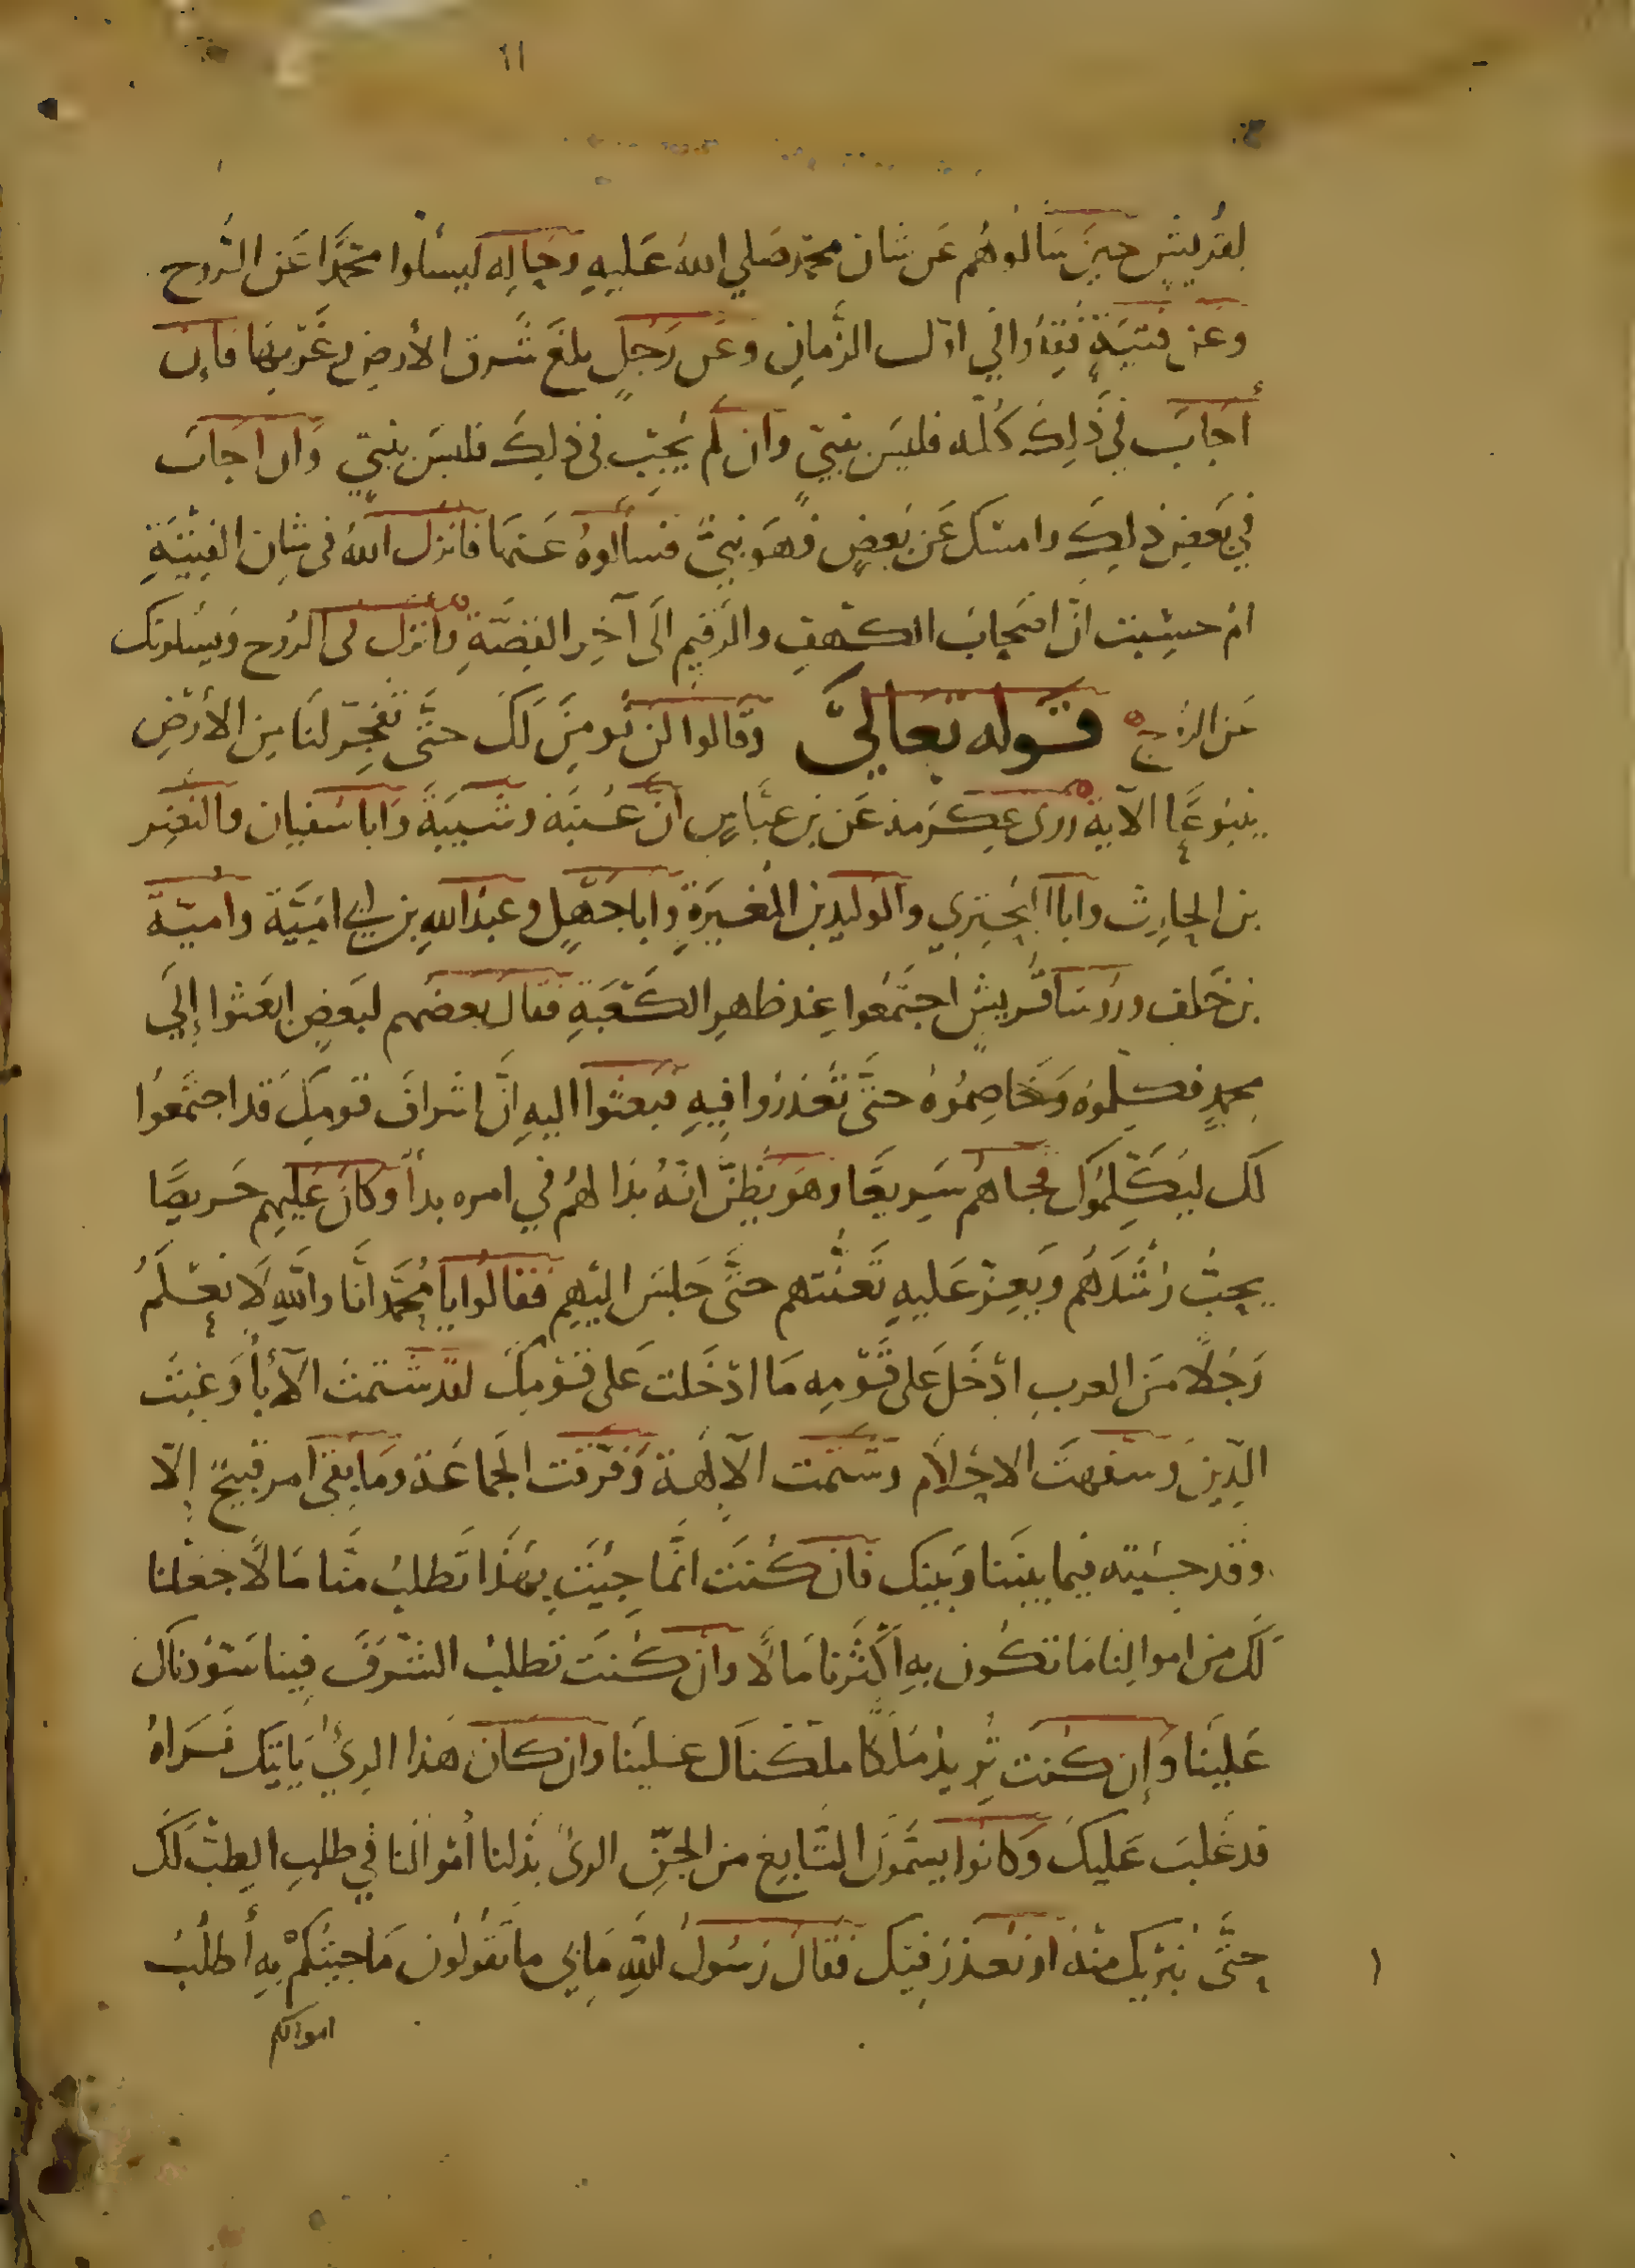 ١١
لقريش حين سالوهم عن شان محمد صلي الله عليه وحاله ليسئلوا محمدا عن الروح
وعن فتية فقدوا في اول الزمان وعن رجل بلغ شرق الأرض وغربها فإن
أجاب في ذلك كله فليس بنبي وان لم يجب في ذلك فليس بنبي وان اجاب
في بعض ذلك وامسك عن بعض فهو نبي فسالوه عنها فانزل الله فى شان الفتية
ام حسبت ان اصحاب الكهف والرقيم الى آخر القصة وانزل فى الروح ويسئلونك
عن الروح قوله تعالي وقالوا لن نومن لك حتى تفجر لنا من الأرض
ينبوعا الآية روى عكرمة عن بن عباس ان عتبة وشيبة وابا سفيان والنضر
بن الحارث وابا البختري والوليد بن المغيرة وابا جهل وعبد الله بن ابي امية وامية
بن خلف وروسا قريش اجتمعوا عند ظهر الكعبة فقال بعضهم لبعض ابعثوا إلي
محمد فكلموه وخاصموه حتى تعذروا فيه فبعثوا اليه ان اشراف قومك قد اجتمعوا
لك ليكلموك فجاهم سريعا وهو يظن انه بدا لهم في امره بدأ وكان عليهم حريصا
يحب رشدهم ويعز عليه تعنتهم حتى جلس اليهم فقالوا يا محمد انا والله لا نعلم
رجلا من العرب ادخل على قومه ما ادخلت على قومك لقد شتمت الآبأ وعبت
الدين وسفهت الاحلام وشتمت الآلهة وفرقت الجماعة وما بقى امر قبيح إلا
وقد جئيته فيما بيننا وبينك فان كنت انما جئت بهذا تطلب منا مالا جعلنا
لك من اموالنا ما تكون به اكثرنا مالا وان كنت تطلب الشرف فينا سودناك
علينا وإن كنت تريد ملكا ملكناك علينا وان كان هذا الرئي ياتيك تراه
قد غلب عليك وكانوا يسمون التابع من الجن الرى بذلنا اموالنا في طلب الطب لك
حتى نبريك منه او نعذر فيك فقال رسول الله ما بي ما تقولون ما جيتكم به أطلب
اموالكم